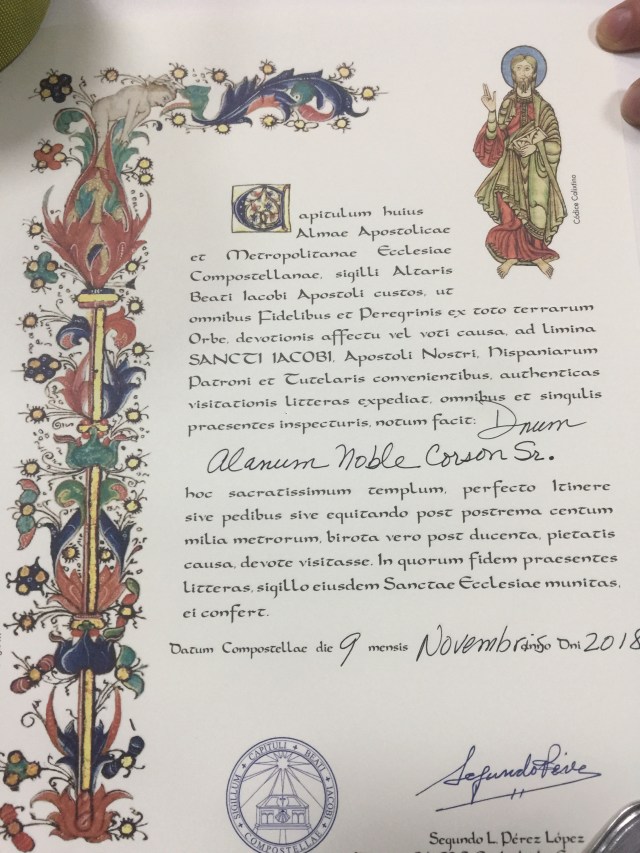 Códice Calixtino
Capitulum huius
Almae Apostolicae
et Metropolitanae Ecclesiae
Compostellanae, sigilli Altaris
Beati Iacobi Apostoli custos, ut
omnibus Fidelibus et Peregrinis ex toto terrarum
Orbe, devotionis affectu vel voti causa, ad limina
SANCTI IACOBI, Apostoli Nostri, Hispaniarum
Patroni et Tutelaris convenientibus, authenticas
visitationis litteras expediat, omnibus et singulis
praesentes inspecturis, notum facit: Dnum
Alanum Noble Corson Sr.
hoc sacratissimum templum, perfecto Itinere
sive pedibus sive equitando post postrema centum
milia metrorum, birota vero post ducenta, pietatis
causa, devote visitasse. In quorum fidem praesentes
litteras, sigillo eiusdem Sanctae Ecclesiae munitas,
ei confert.
Datum Compostellae die 9 mensis Novembris anno Dni 2018
SIGILLUM CAPITULI BEATI IACOBI COMPOSTELLAE
Segundo Pérez
Segundo L. Pérez López